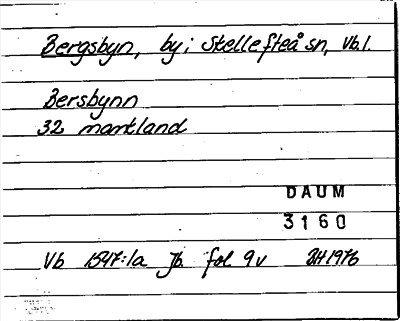 Bergsbyn, by i Skellefteå sn, Vb.l.
Bersbynn
32 markland
DAUM
3160
Vb 1547:1a Jb. fol 9v BH1976